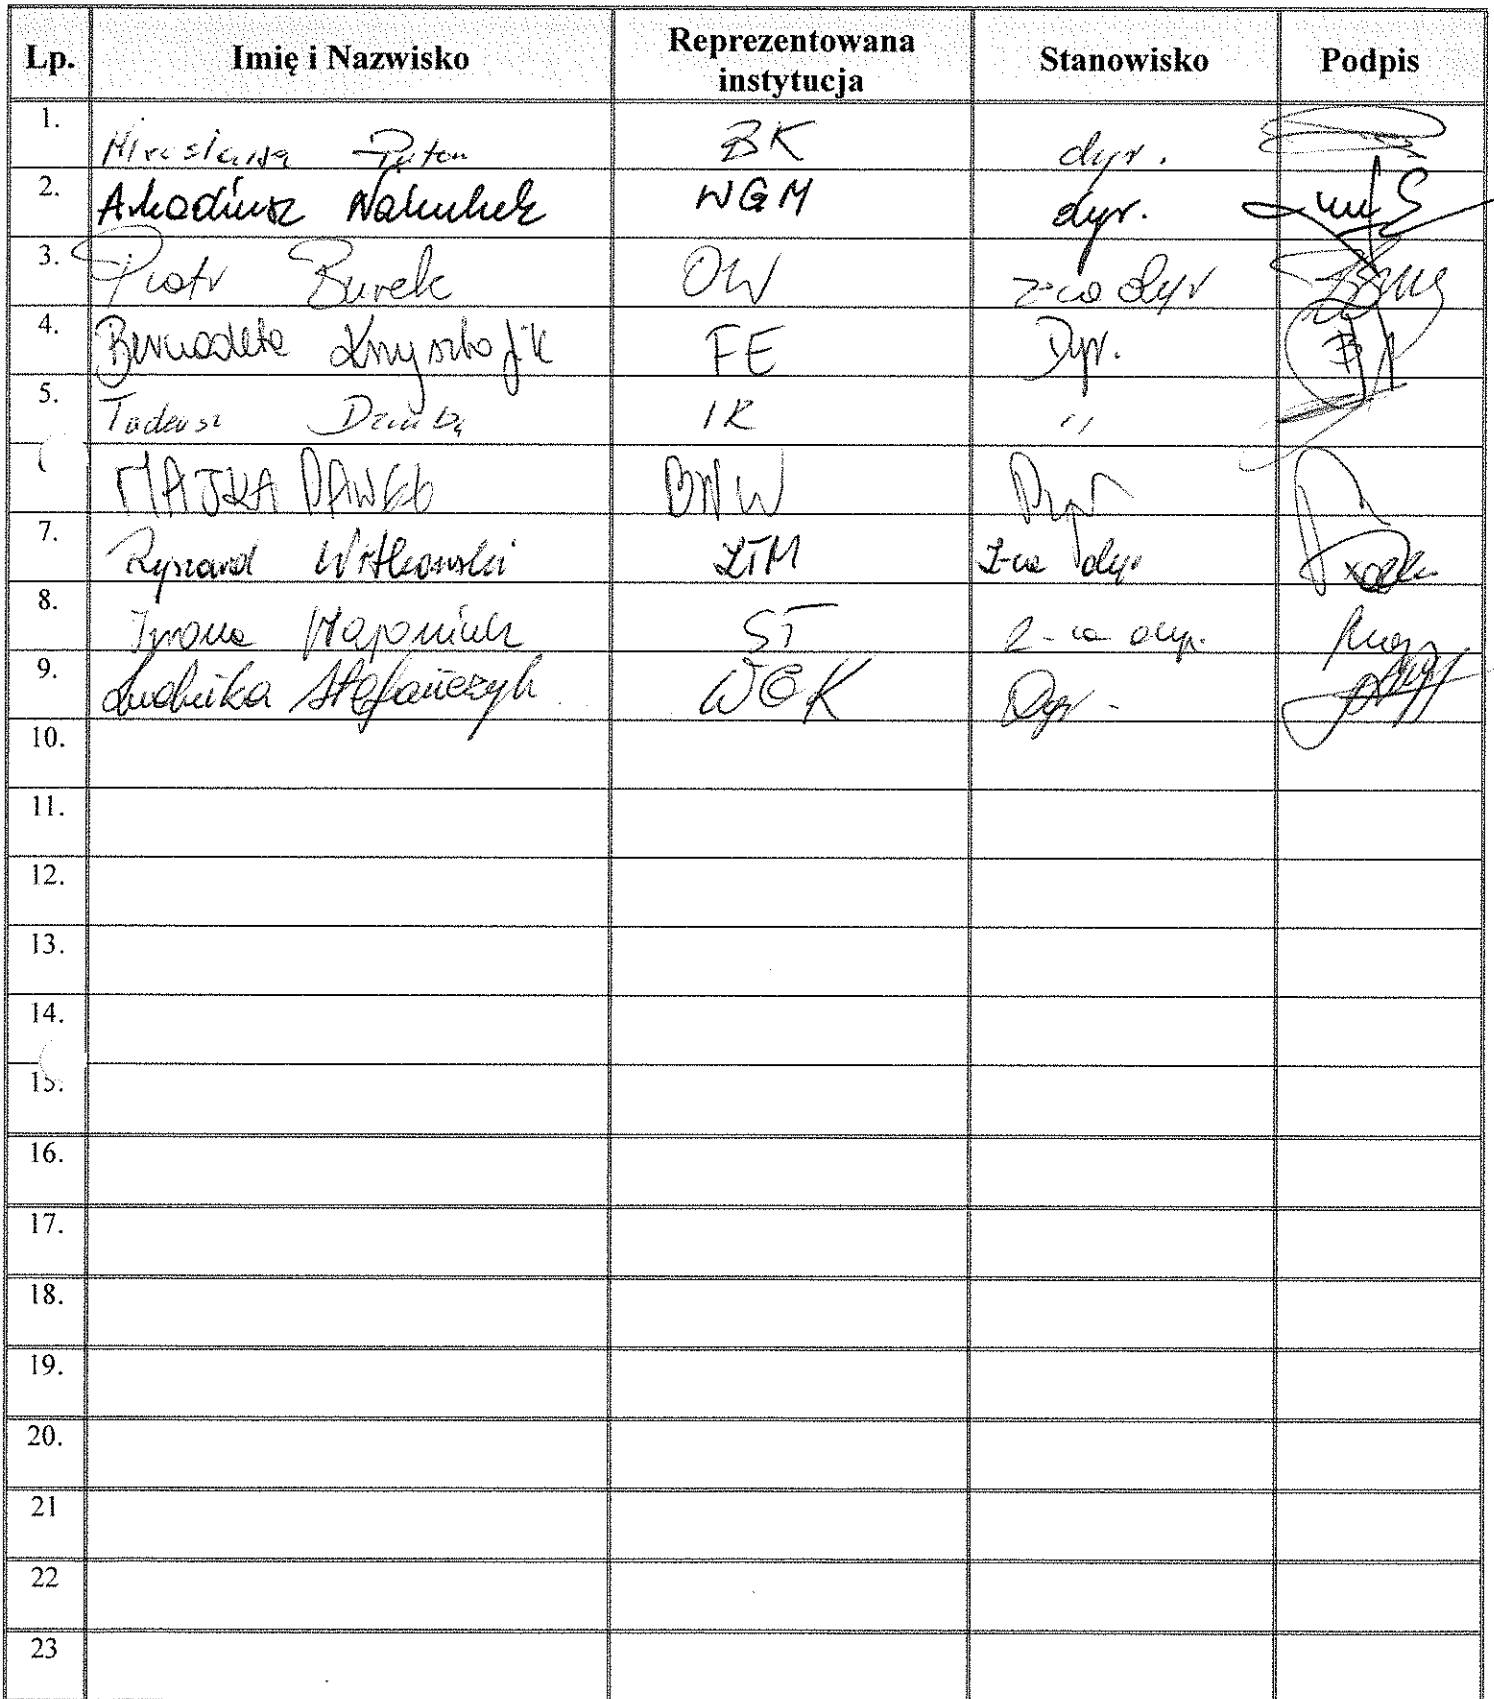 Lp. Imię i Nazwisko Reprezentowana instytucja Stanowisko Podpis
1. Mirosława BK dyr.
2. Arkadiusz Nakulek WGM dyr.
3. Piotr Burek OW z-ca dyr
4. Bernadeta Krzysztofik FE Dyr.
5. Tadeusz Dziuba IR ,,
MAJKA PAWEŁ Dyr
7. Ryszard Witkowski ZTM Z-ca dyr
8. Iwona Majoniuk ST Z-ca dyr.
9. Ludwika Stefańczyk WGK Dyr.
10.
11.
12.
13.
14.
15.
16.
17.
18.
19.
20.
21
22
23